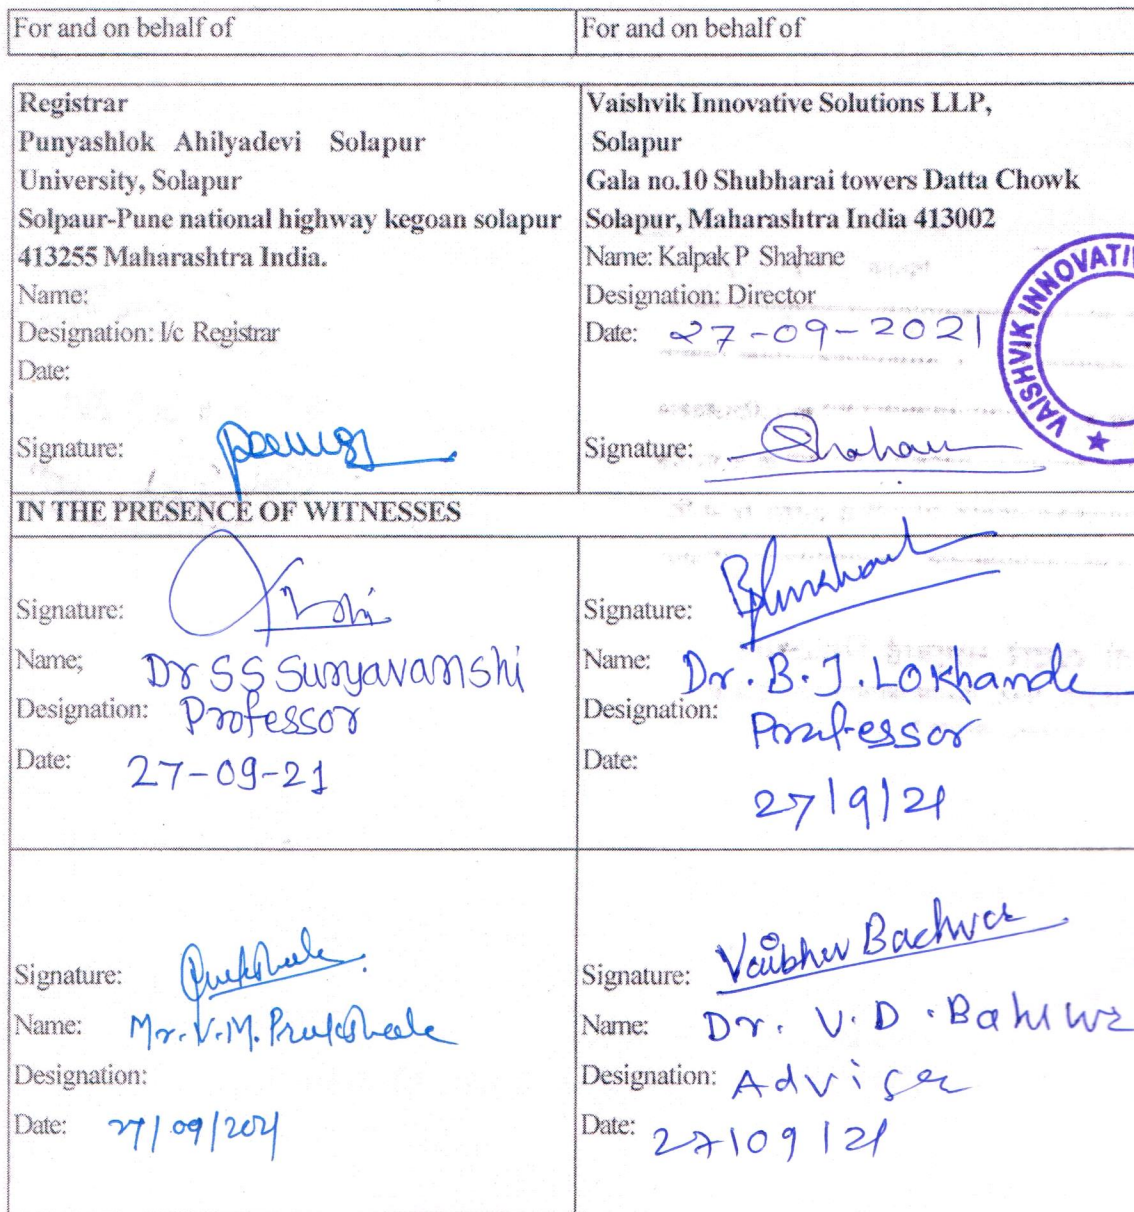 For and on behalf of
For and on behalf of
Registrar
Punyashlok Ahilyadevi Solapur
University, Solapur
Solpaur-Pune national highway kegoan solapur
413255 Maharashtra India.
Name:
Designation: I/c Registrar
Date:
Signature:
Vaishvik Innovative Solutions LLP,
Solapur
Gala no.10 Shubharai towers Datta Chowk
Solapur, Maharashtra India 413002
Name: Kalpak P Shahane
Designation: Director
Date: 27-09-2021
Signature:
VAISHVIK INNOVATI
IN THE PRESENCE OF WITNESSES
Signature:
Name; Dr SS Suryavanshi
Designation: Professor
Date: 27-09-21
Signature:
Name: Dr. B. J. Lokhande
Designation: Professor
Date: 27/9/21
Signature:
Name: Mr. V. M.
Designation:
Date: 27/09/2021
Signature: Vaibhav
Name: Dr. V. D.
Designation: Adviser
Date: 27/09/21